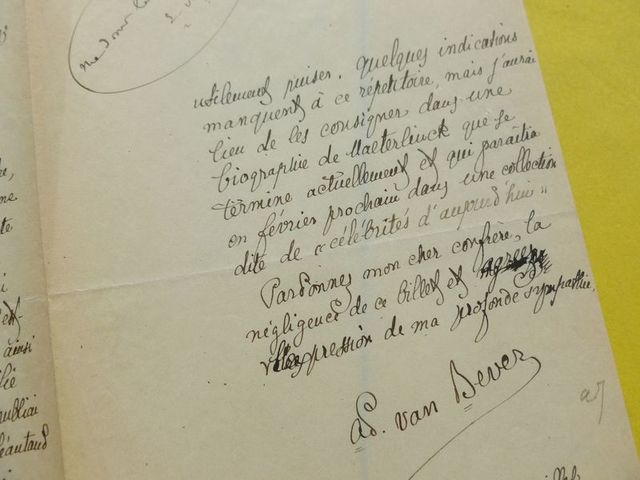 utilement puiser. Quelques indications
manquent à ce répertoire, mais j'aurai
lieu de les consigner dans une
biographie de Maeterlinck que je
termine actuellement et qui paraîtra
en février prochain dans une collection
dite de « célébrités d'aujourd'hui »
Pardonnez mon cher confrère, la
négligence de ce billet et agréez
l'expression de ma profonde sympathie.
Ad. van Bever
ainsi
publiai
Léautaud